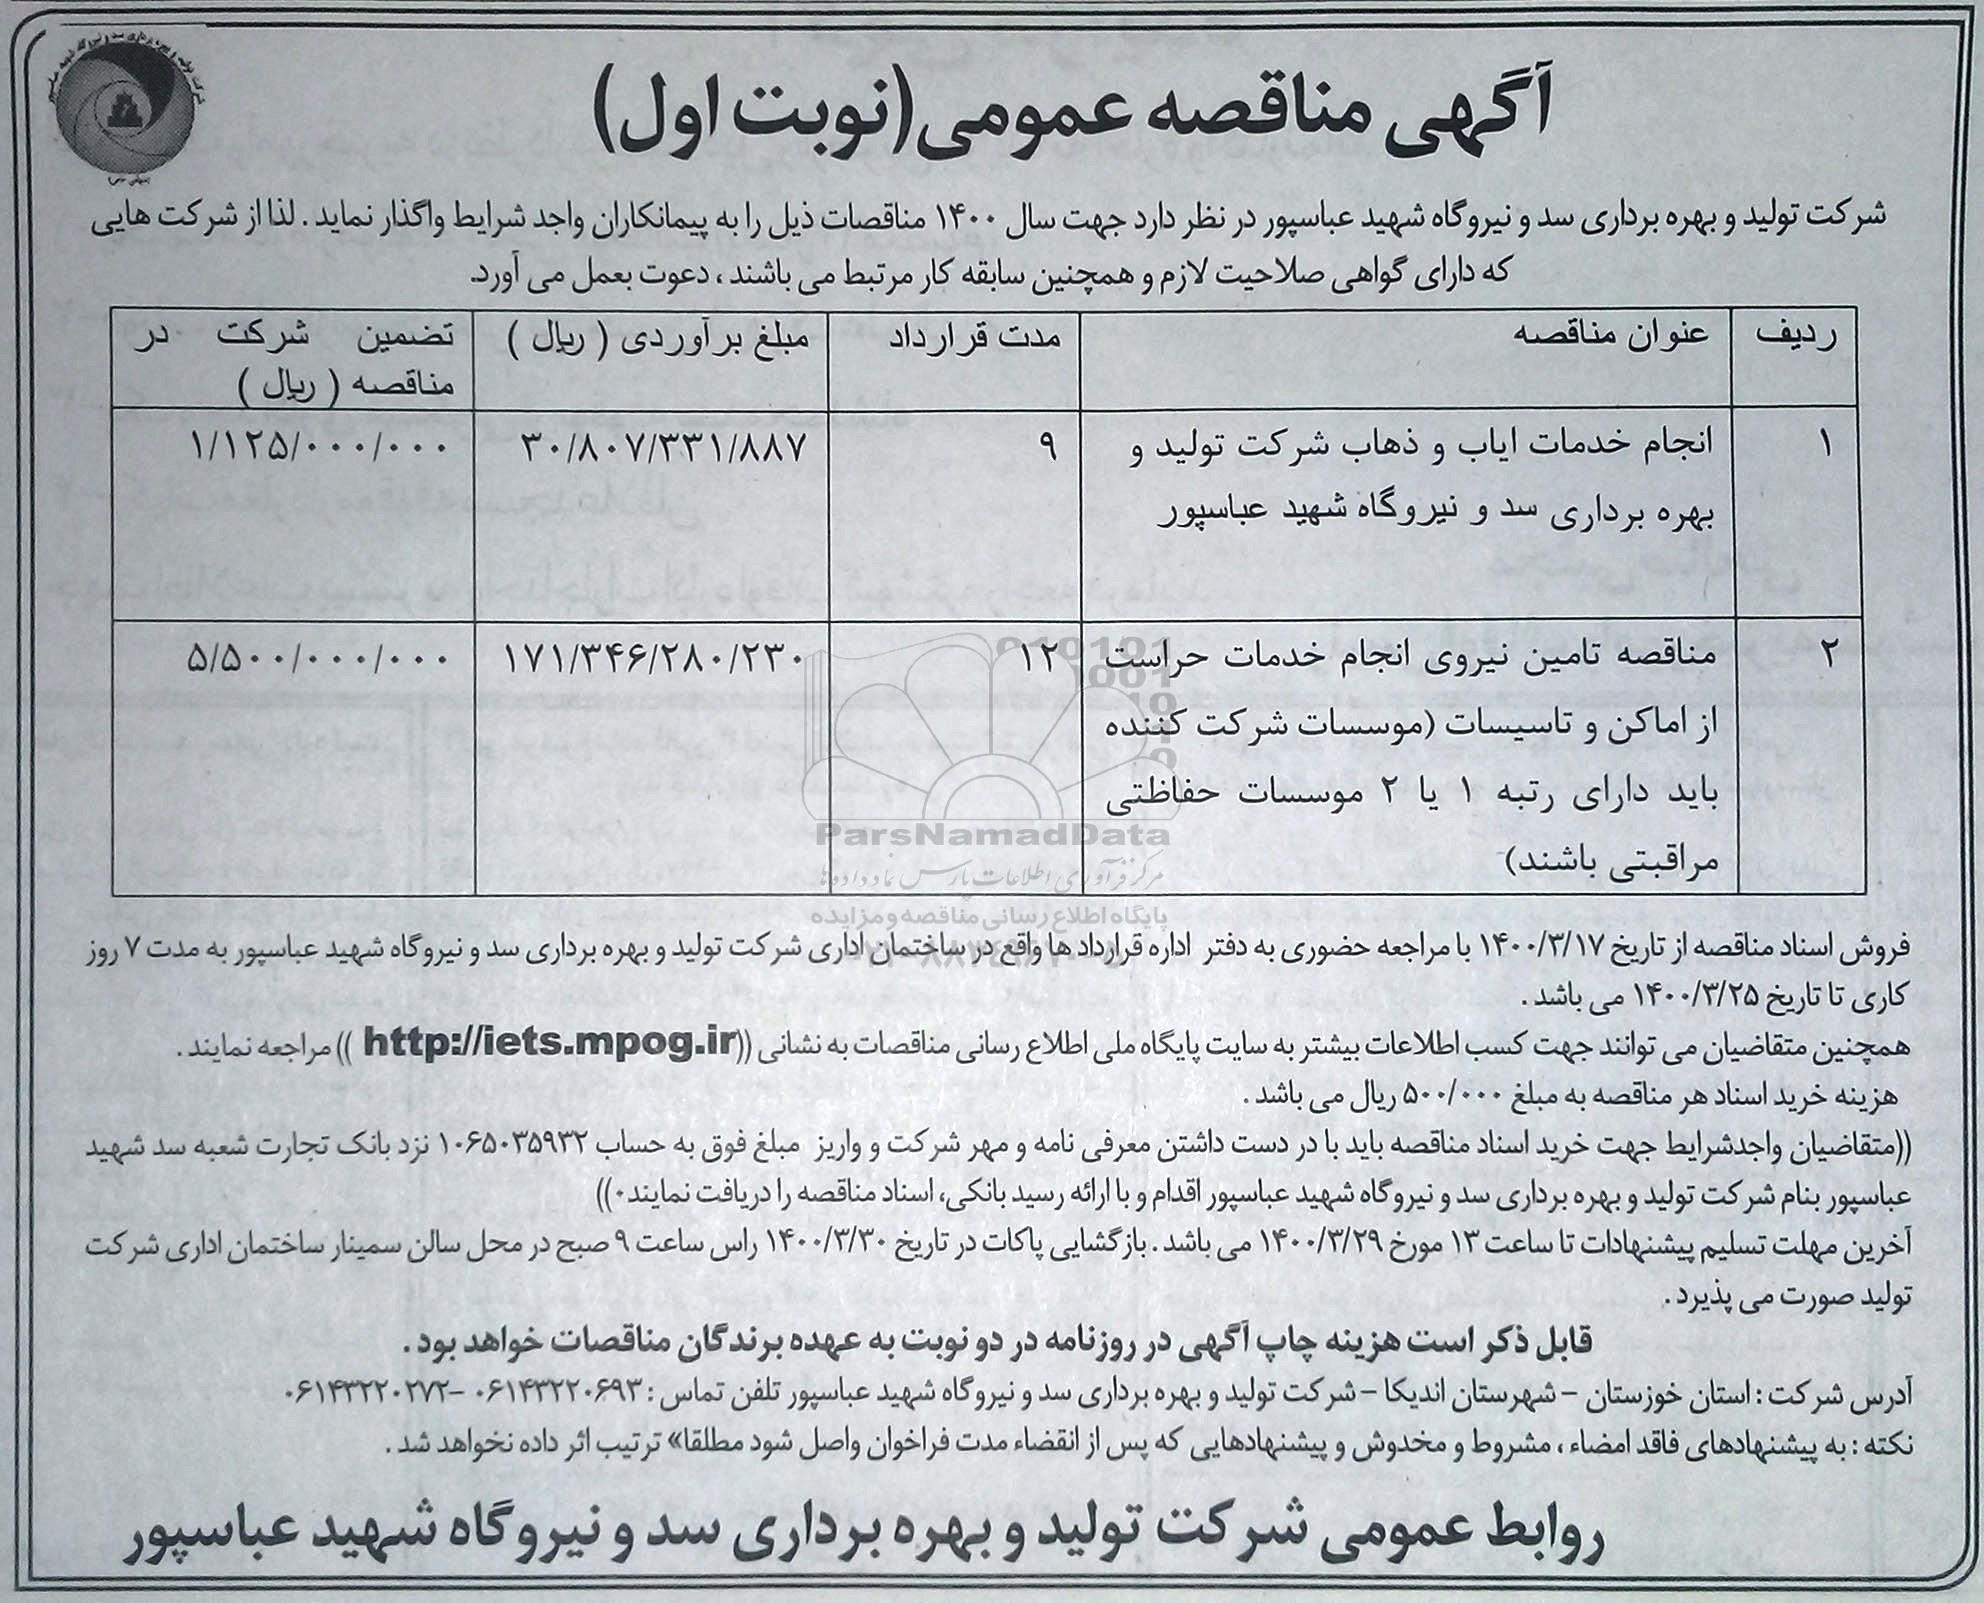 آگهی مناقصه عمومی(نوبت اول)
شرکت تولید و بهره برداری سد و نیروگاه شهید عباسپور در نظر دارد جهت سال ۱۴۰۰ مناقصات ذیل را به پیمانکاران واجد شرایط واگذار نماید . لذا از شرکت هایی
که دارای گواهی صلاحیت لازم و همچنین سابقه کار مرتبط می باشند ، دعوت بعمل می آورد.
ردیف عنوان مناقصه مدت قرارداد مبلغ برآوردی ( ریال ) تضمین شرکت در
مناقصه ( ریال )
۱ انجام خدمات ایاب و ذهاب شرکت تولید و ۹ ۳۰/۸۰۷/۳۳۱/۸۸۷ ۱/۱۲۵/۰۰۰/۰۰۰
بهره برداری سد و نیروگاه شهید عباسپور
۲ مناقصه تامین نیروی انجام خدمات حراست ۱۲ ۱۷۱/۳۴۶/۲۸۰/۲۳۰ ۵/۵۰۰/۰۰۰/۰۰۰
از اماکن و تاسیسات (موسسات شرکت کننده
باید دارای رتبه ۱ یا ۲ موسسات حفاظتی
مراقبتی باشند)
ParsNamadData
مرکز فرآوری اطلاعات پارس نماد داده‌ها
پایگاه اطلاع رسانی مناقصه و مزایده
فروش اسناد مناقصه از تاریخ ۱۴۰۰/۳/۱۷ با مراجعه حضوری به دفتر اداره قرارداد ها واقع در ساختمان اداری شرکت تولید و بهره برداری سد و نیروگاه شهید عباسپور به مدت ۷ روز
کاری تا تاریخ ۱۴۰۰/۳/۲۵ می باشد .
همچنین متقاضیان می توانند جهت کسب اطلاعات بیشتر به سایت پایگاه ملی اطلاع رسانی مناقصات به نشانی ((http://iets.mpog.ir )) مراجعه نمایند .
هزینه خرید اسناد هر مناقصه به مبلغ ۵۰۰/۰۰۰ ریال می باشد .
((متقاضیان واجدشرایط جهت خرید اسناد مناقصه باید با در دست داشتن معرفی نامه و مهر شرکت و واریز مبلغ فوق به حساب ۱۰۶۵۰۳۵۹۳۲ نزد بانک تجارت شعبه سد شهید
عباسپور بنام شرکت تولید و بهره برداری سد و نیروگاه شهید عباسپور اقدام و با ارائه رسید بانکی، اسناد مناقصه را دریافت نمایند۰))
آخرین مهلت تسلیم پیشنهادات تا ساعت ۱۳ مورخ ۱۴۰۰/۳/۲۹ می باشد . بازگشایی پاکات در تاریخ ۱۴۰۰/۳/۳۰ راس ساعت ۹ صبح در محل سالن سمینار ساختمان اداری شرکت
تولید صورت می پذیرد .
قابل ذکر است هزینه چاپ آگهی در روزنامه در دو نوبت به عهده برندگان مناقصات خواهد بود .
آدرس شرکت : استان خوزستان – شهرستان اندیکا – شرکت تولید و بهره برداری سد و نیروگاه شهید عباسپور تلفن تماس : ۰۶۱۴۳۲۲۰۶۹۳ –۰۶۱۴۳۲۲۰۲۷۲
نکته : به پیشنهادهای فاقد امضاء ، مشروط و مخدوش و پیشنهادهایی که پس از انقضاء مدت فراخوان واصل شود مطلقا» ترتیب اثر داده نخواهد شد .
روابط عمومی شرکت تولید و بهره برداری سد و نیروگاه شهید عباسپور